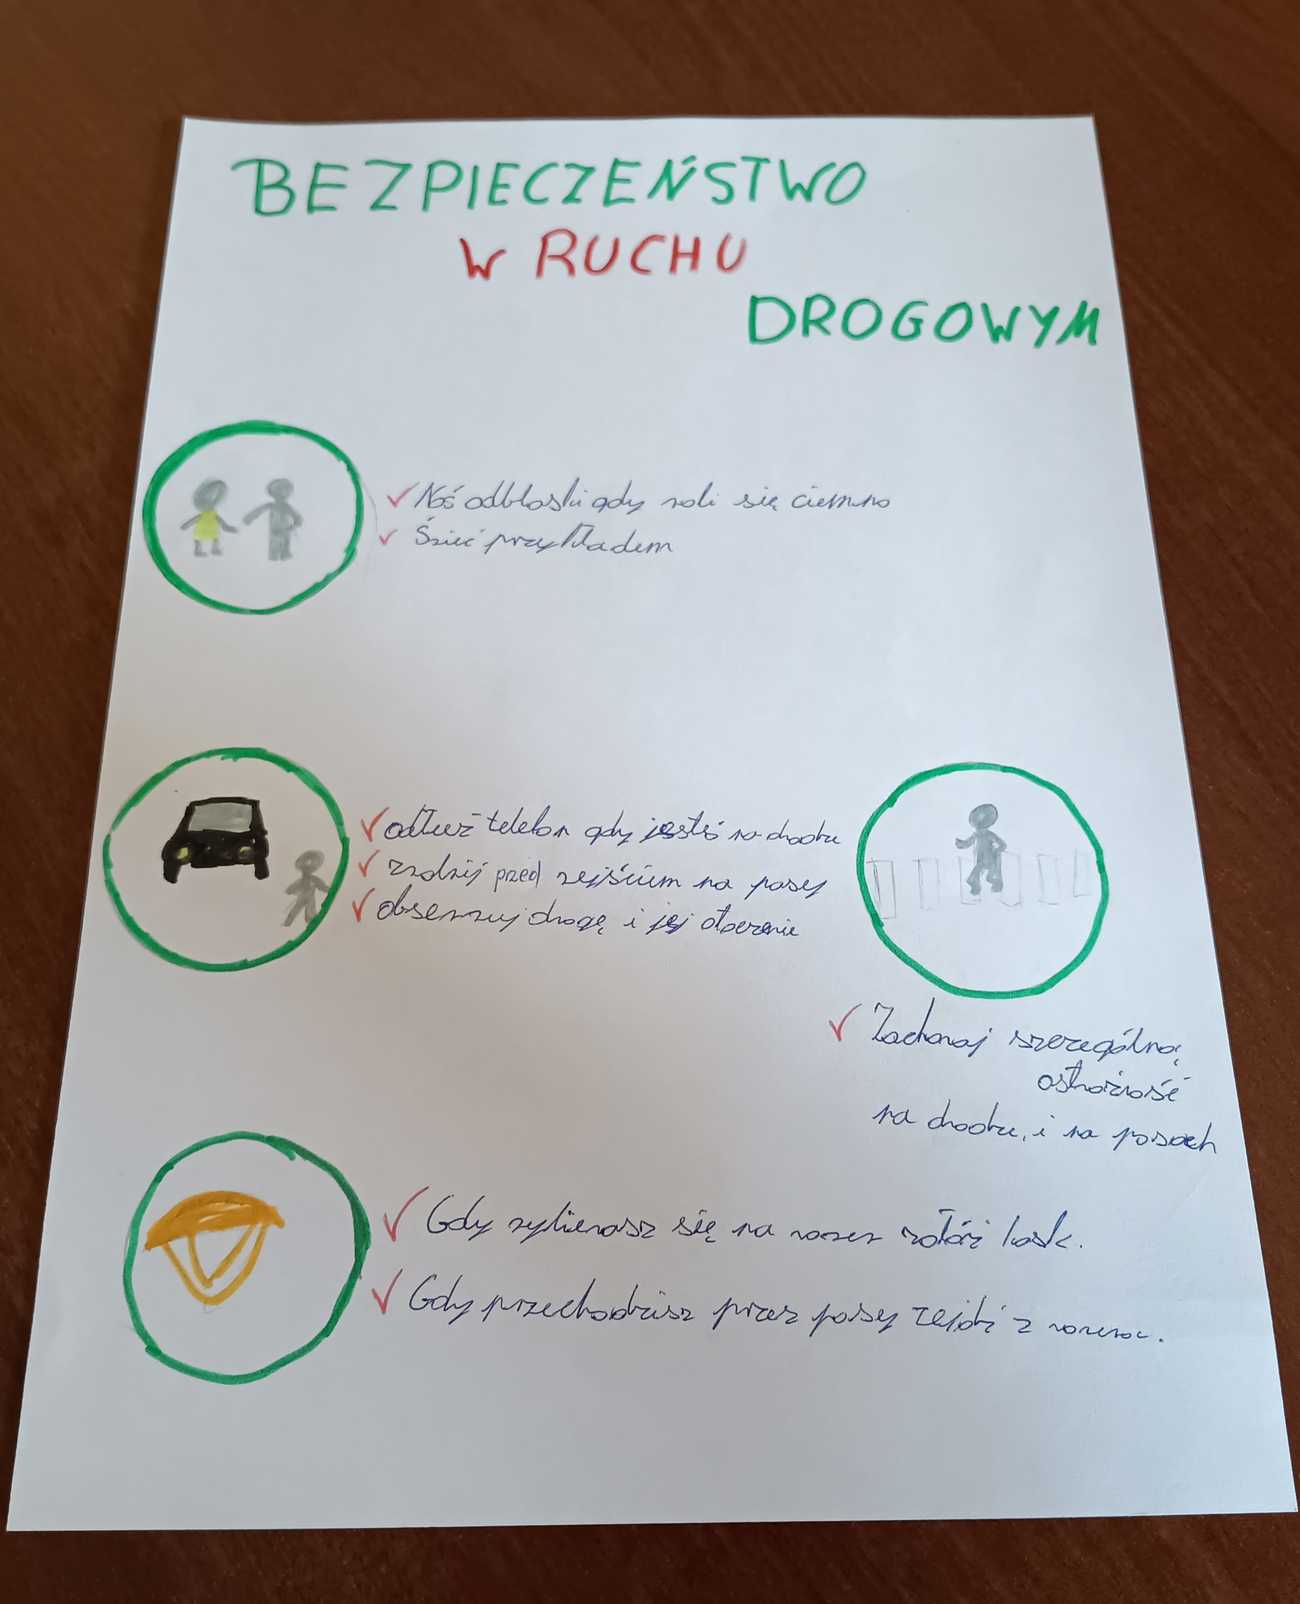 BEZPIECZEŃSTWO
W RUCHU
DROGOWYM
Noś odblaski gdy robi się ciemno
Świeć przykładem
odłuż telefon gdy jesteś na drodze
zwolnij przed wejściem na pasy
obserwuj drogę i jej otoczenie
Zachowaj szczególną
ostrożność
na drodze, i na pasach
Gdy wybierasz się na rower załóż kask.
Gdy przechodzisz przez pasy zejdź z roweru.